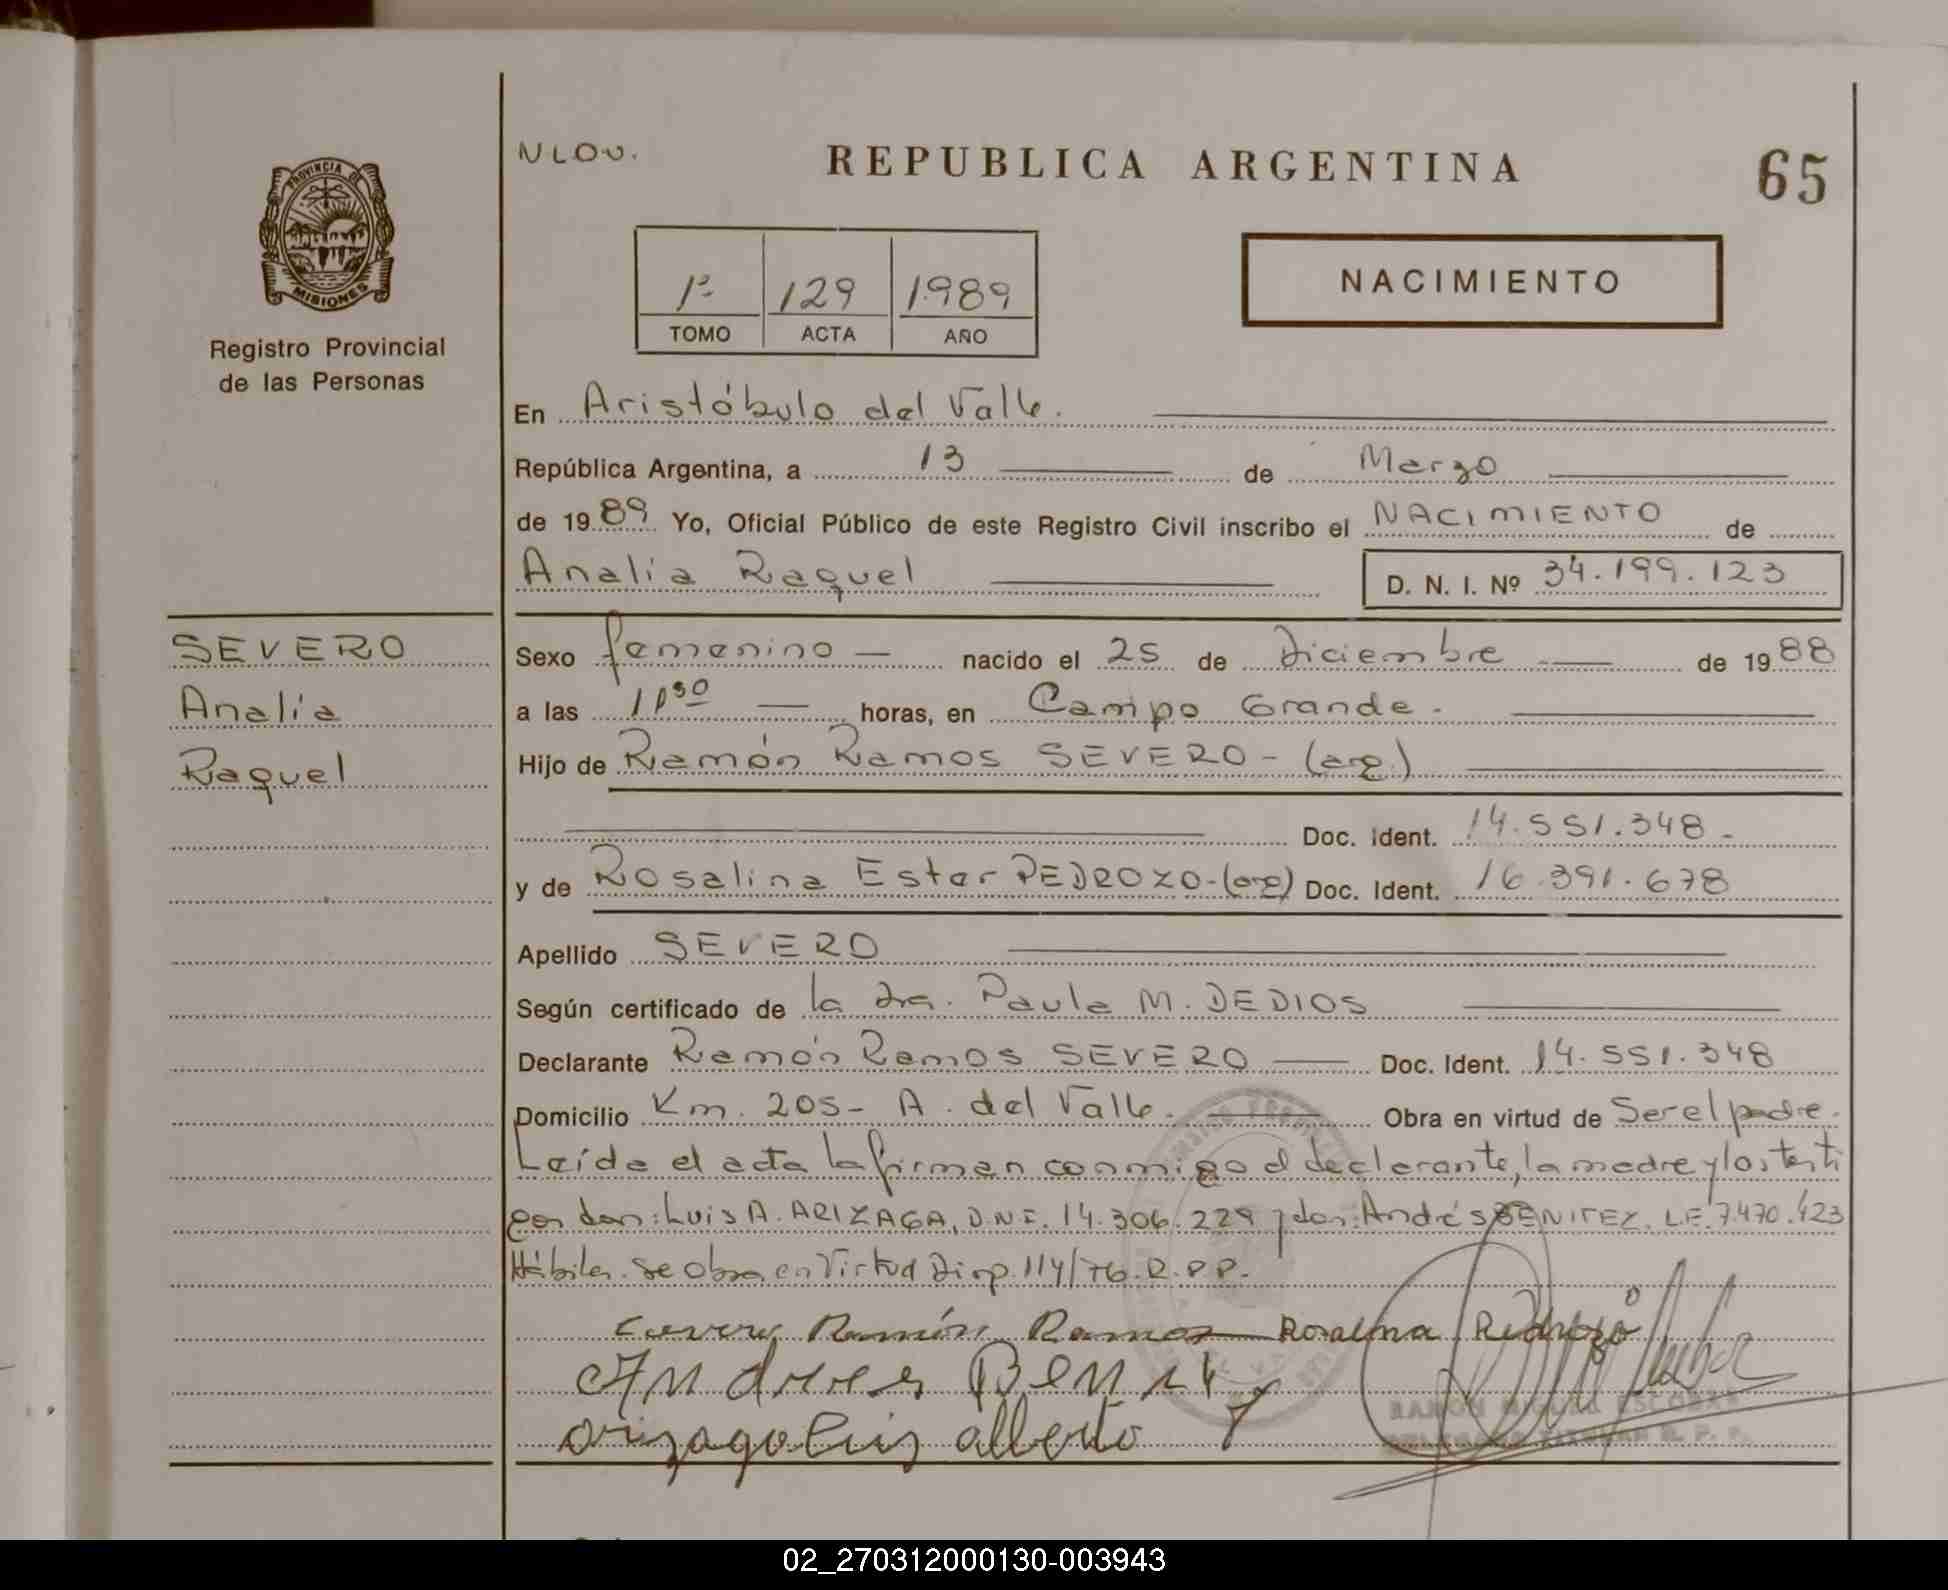 NLOV.
REPUBLICA ARGENTINA
65
PROVINCIA DE
MISIONES
Registro Provincial
de las Personas
1º 129 1989
TOMO ACTA AÑO
NACIMIENTO
En Aristóbulo del Valle.
República Argentina, a 13 de Marzo
de 1989 Yo, Oficial Público de este Registro Civil inscribo el NACIMIENTO de
Analía Raquel D. N. I. Nº 34.199.123
SEVERO
Analía
Raquel
Sexo femenino nacido el 25 de Diciembre de 1988
a las 11 30 horas, en Campo Grande.
Hijo de Ramón Ramos SEVERO - (arg.)
Doc. Ident. 14.551.348-
y de Rosalina Ester PEDROZO-(arg) Doc. Ident. 16.391.678
Apellido SEVERO
Según certificado de la Dra. Paula M. DEDIOS
Declarante Ramón Ramos SEVERO Doc. Ident. 14.551.348
Domicilio Km. 205- A. del Valle. Obra en virtud de Ser el padre.
Leída el acta la firman conmigo el declarante, la madre y los testi
gos don: Luis A. ARIZAGA, D.N.I. 14.306.229 y don: Andrés BENITEZ. L.E. 7.470.423
Hábiles. Se obra en Virtud Disp. 114/76. R.P.P.-
Severo Ramón Ramos Rosalina Pedrozo
Andres Benitez
arizaga luis alberto
RAMON MIGUEL ESCOBAR
DELEGADO TITULAR R. P. P.
02_270312000130-003943